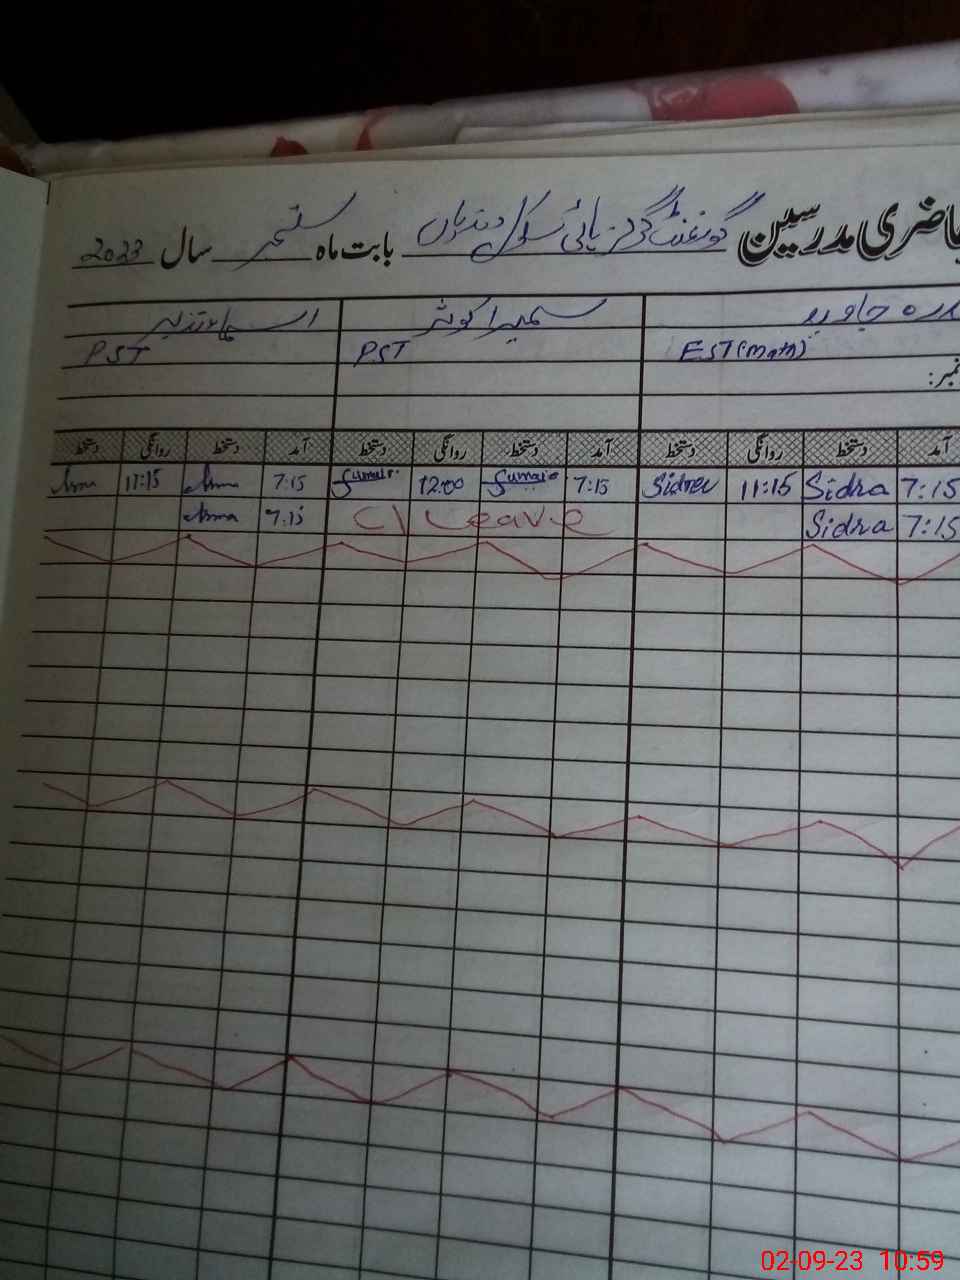 حاضری مدرسین گورنمنٹ گرلز ہائی سکول بابت ماہ ستمبر سال 2023
سدرہ جاوید سمیرا کوثر اسماء نذیر
EST (Math) PST PST
نمبر:
آمد دستخط روانگی دستخط آمد دستخط روانگی دستخط آمد دستخط روانگی دستخط
7:15 Sidra 11:15 Sidra 7:15 Sumaira 12:00 Sumaira 7:15 Asma 11:15 Asma
7:15 Sidra C/Leave 7:15 Asma
02-09-23 10:59